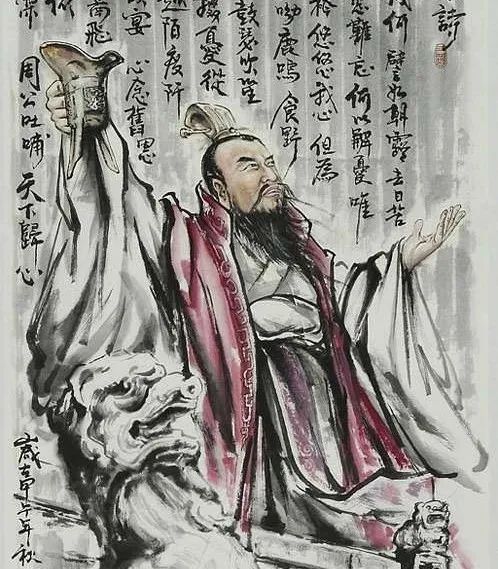 詩
何 譬如朝露 去日苦
思難忘 何以解憂 唯
衿 悠悠我心 但為
呦鹿鳴 食野
鼓瑟吹笙
掇 憂從
越陌度阡
宴 心念舊恩
南飛
周公吐哺 天下歸心
歲在甲午年秋